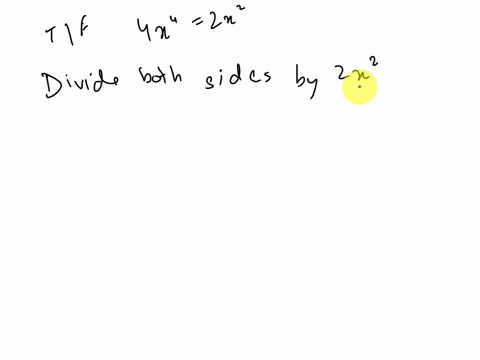 T/F 4x⁴ = 2x²
Divide both sides by 2x²